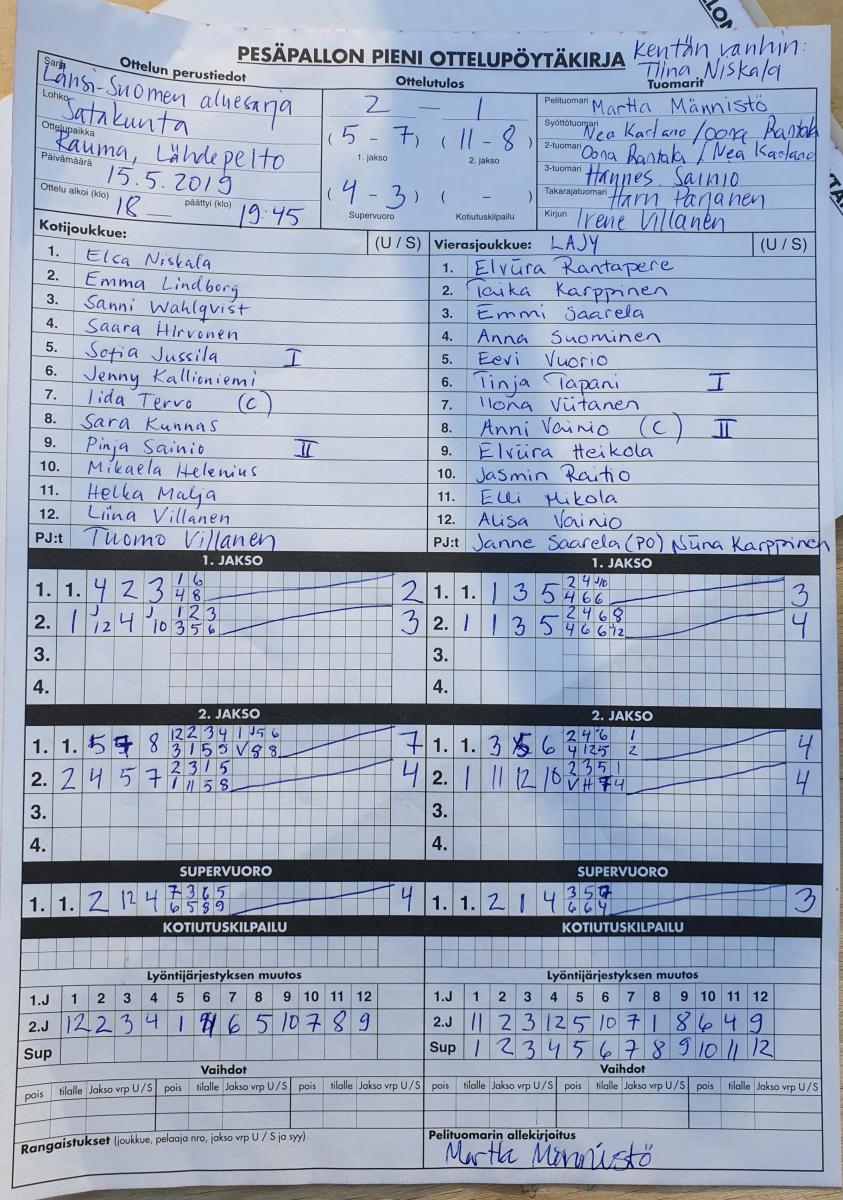 PESÄPALLON PIENI OTTELUPÖYTÄKIRJA
Kentän vanhin:
Tiina Niskala
Ottelun perustiedot
Sarja Länsi-Suomen aluesarja
Lohko Satakunta
Ottelupaikka Rauma, Lähdepelto
Päivämäärä 15.5.2019
Ottelu alkoi (klo) 18 päättyi (klo) 19.45
Ottelutulos
2 - 1
(5 - 7) (11 - 8)
1. jakso 2. jakso
(4 - 3) ( - )
Supervuoro Kotiutuskilpailu
Tuomarit
Pelituomari Martta Männistö
Syöttötuomari Nea Karlano / Oona Rantala
2-tuomari Oona Rantala / Nea Karlano
3-tuomari Hannes Sainio
Takarajatuomari Harri Parjanen
Kirjuri Irene Villanen
Kotijoukkue: (U / S)
1. Elsa Niskala
2. Emma Lindborg
3. Sanni Wahlqvist
4. Saara Hirvonen
5. Sofia Jussila I
6. Jenny Kallioniemi
7. Iida Tervo (C)
8. Sara Kunnas
9. Pinja Sainio II
10. Mikaela Helenius
11. Helka Malja
12. Liina Villanen
PJ:t Tuomo Villanen
Vierasjoukkue: LAJY (U / S)
1. Elviira Rantapere
2. Taika Karppinen
3. Emmi Saarela
4. Anna Suominen
5. Eevi Vuorio
6. Tinja Tapani I
7. Ilona Viitanen
8. Anni Vainio (C) II
9. Elviira Heikola
10. Jasmin Raitio
11. Elli Mikola
12. Alisa Vainio
PJ:t Janne Saarela (PO) Niina Karppinen
1. JAKSO
1. 1. 4 2 3 1 6 2
4 8
2. 1 J12 4 J10 1 2 3 3
3 5 6
3.
4.
1. JAKSO
1. 1. 1 3 5 2 4 J10 3
4 6 6
2. 1 1 3 5 2 4 6 8 4
4 6 6 12
3.
4.
2. JAKSO
1. 1. 5 8 12 2 3 4 1 J5 6 7
3 1 5 5 V 8 8
2. 2 4 5 7 2 3 1 5 4
1 11 5 8
3.
4.
2. JAKSO
1. 1. 3 5 6 2 4 6 1 4
4 12 5 2
2. 1 11 12 10 2 3 5 1 4
V H 7 4
3.
4.
SUPERVUORO
1. 1. 2 12 4 7 3 6 5 4
6 5 8 9
SUPERVUORO
1. 1. 2 1 4 3 5 7 3
6 6 4
KOTIUTUSKILPAILU
KOTIUTUSKILPAILU
Lyöntijärjestyksen muutos
1.J 1 2 3 4 5 6 7 8 9 10 11 12
2.J 12 2 3 4 1 11 6 5 10 7 8 9
Sup
Lyöntijärjestyksen muutos
1.J 1 2 3 4 5 6 7 8 9 10 11 12
2.J 11 2 3 12 5 10 7 1 8 6 4 9
Sup 1 2 3 4 5 6 7 8 9 10 11 12
Vaihdot
pois tilalle Jakso vrp U / S pois tilalle Jakso vrp U / S pois tilalle Jakso vrp U / S
Vaihdot
pois tilalle Jakso vrp U / S pois tilalle Jakso vrp U / S pois tilalle Jakso vrp U / S
Rangaistukset (joukkue, pelaaja nro, jakso vrp U / S ja syy)
Pelituomarin allekirjoitus
Martta Männistö